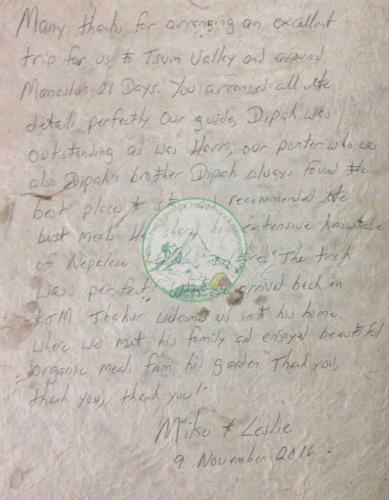 Many thanks for arranging an excellent
trip for us to Tsum Valley and around
Manaslu: 21 Days. You arranged all the
details perfectly. Our guide, Dipak was
outstanding as was Hom, our porter who was
also Dipak's brother. Dipak always found the
best place to stay recommended the
best meals. He his extensive knowledge
of Nepalese The trek
was perfect! When we arrived back in
KTM Thakur welcomed us into his home
where we met his family and enjoyed beautiful
organic meals from his garden. Thank you,
thank you, thank you!
Mike & Leslie
9 November 2016